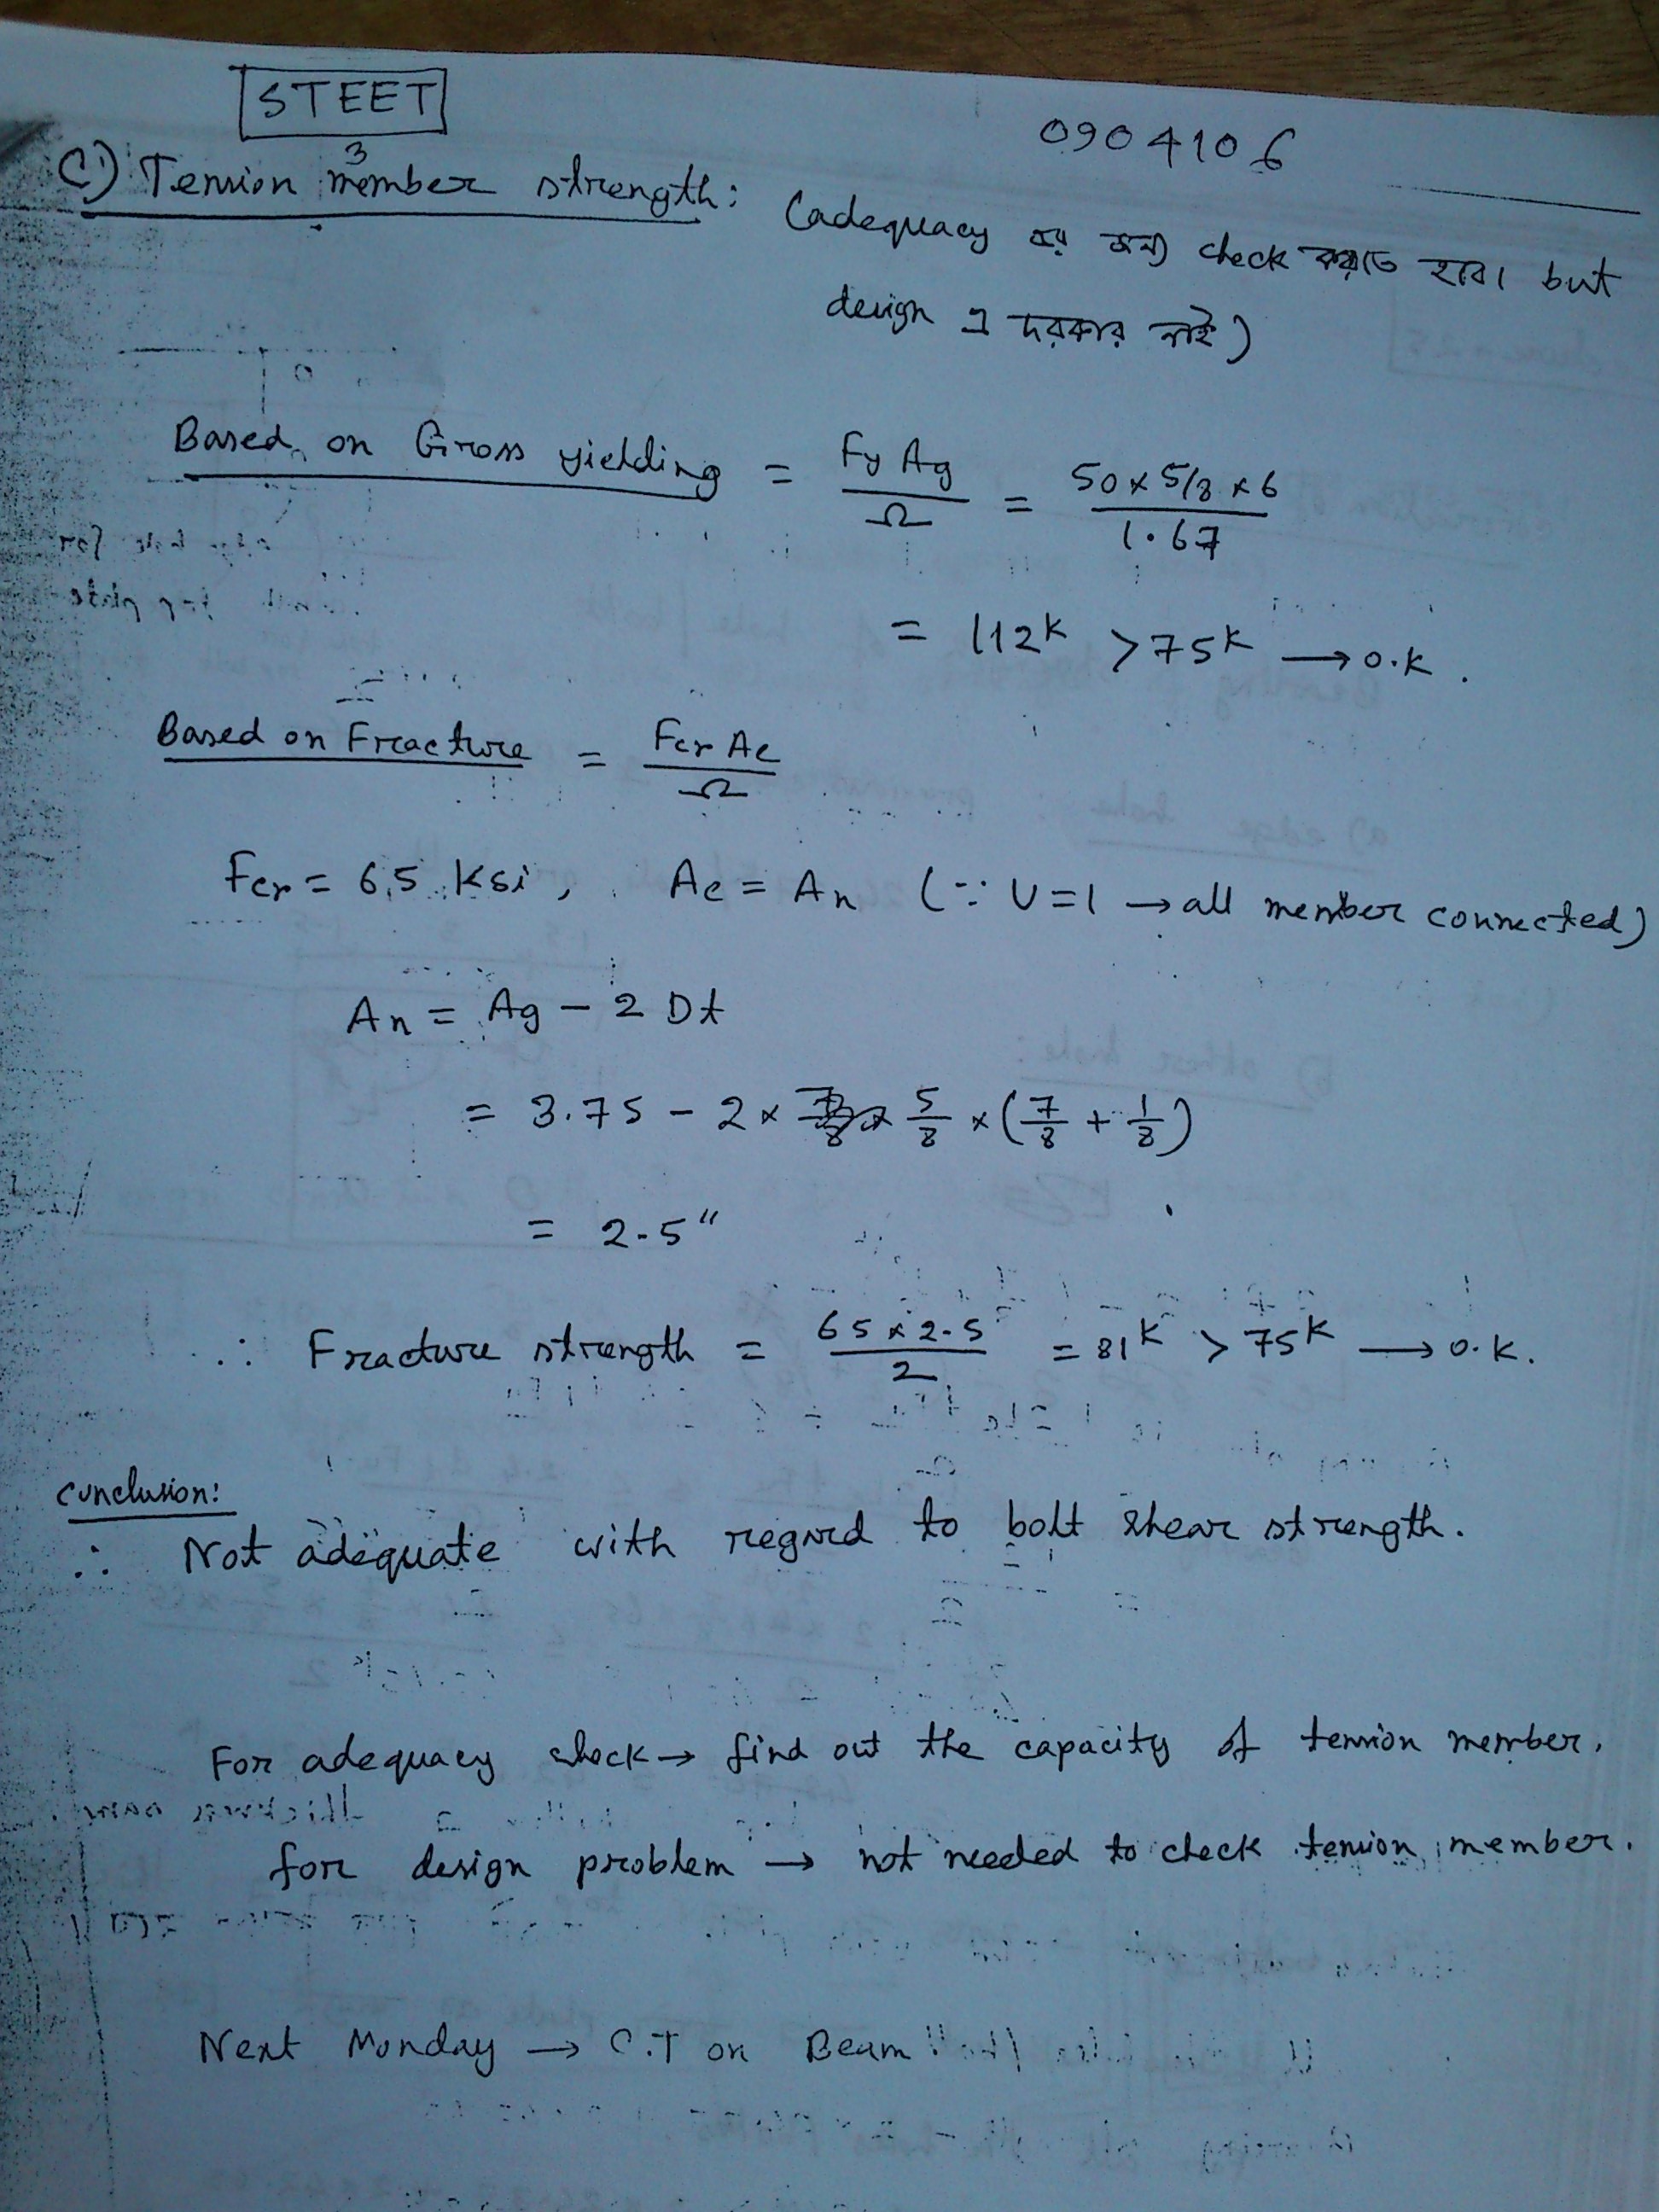 STEET
0904106
3
C) Tension member strength: (adequacy এর জন্য check করতে হবে। but
design এ দরকার নাই)
Based on Gross yielding = Fy Ag / Ω = 50 x 5/8 x 6 / 1.67
= 112k > 75k → O.K.
Based on Fracture = Fcr Ae / Ω
Fcr = 65 ksi, Ae = An (∵ U=1 → all member connected)
An = Ag - 2 Dt
= 3.75 - 2 x 5/8 x (7/8 + 1/8)
= 2.5"
∴ Fracture strength = 65 x 2.5 / 2 = 81k > 75k → O.K.
Conclusion:
∴ Not adequate with regard to bolt shear strength.
For adequacy check → find out the capacity of tension member.
for design problem → not needed to check tension member.
Next Monday → C.T on Beam